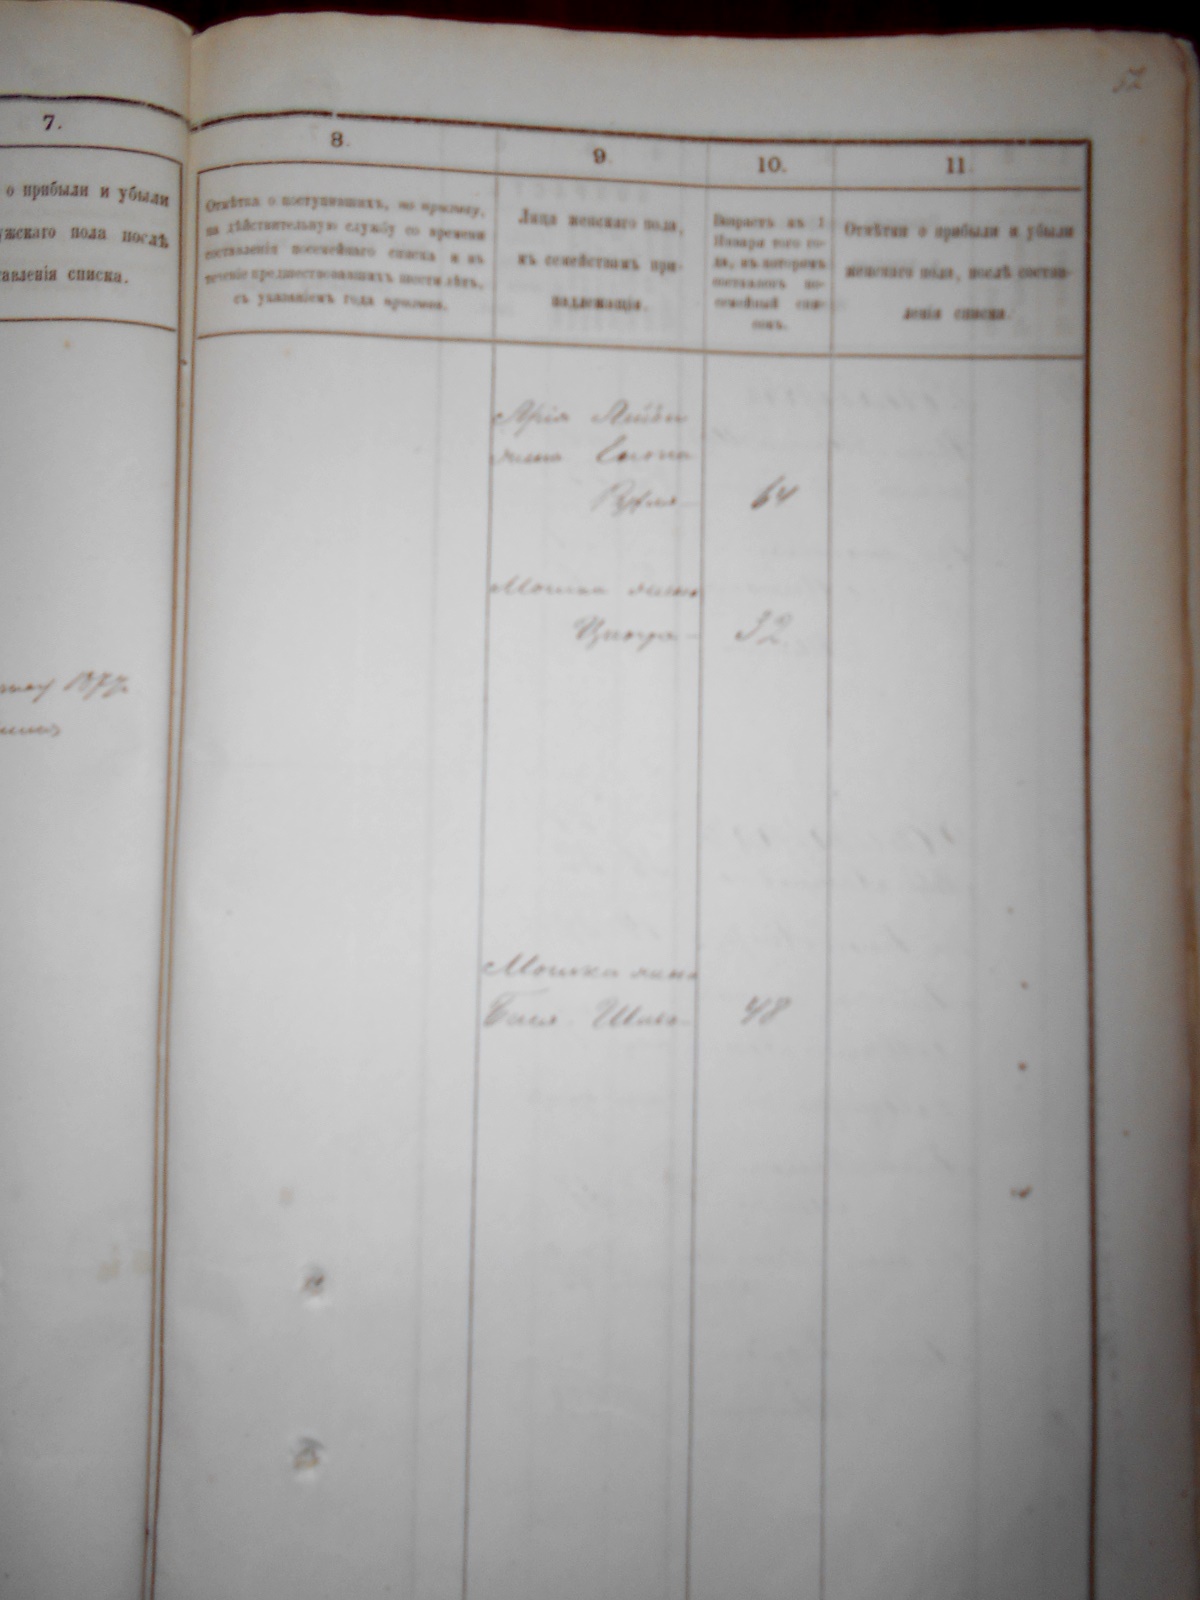 52
7.
о прибыли и убыли
ужскаго пола послѣ
тавленія списка.
1877
8.
Отмѣтка о поступившихъ, по призыву,
на дѣйствительную службу со времени
составленія посемейнаго списка и въ
теченіе предшествовавшихъ шести лѣтъ,
съ указаніемъ года призыва.
9.
Лица женскаго пола,
къ семействамъ при-
надлежащія.
10.
Возрастъ къ 1
Января того го-
да, въ которомъ
составленъ по-
семейный спи-
сокъ.
11.
Отмѣтки о прибыли и убыли
женскаго пола, послѣ состав-
ленія списка.
жена
64
Мошка жена
32
Мошка жена
Бася
48